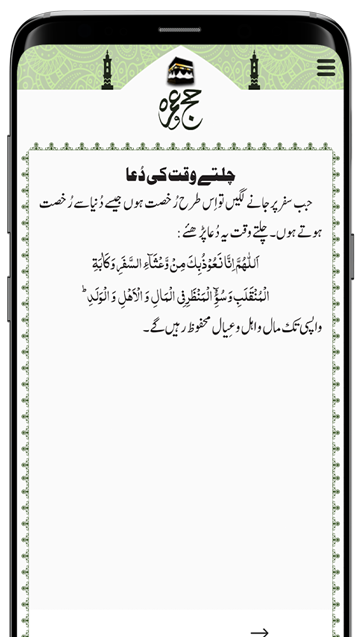 حج و عمرہ
چلتے وقت کی دُعا
جب سفر پر جانے لگیں تو اِس طرح رُخصت ہوں جیسے دُنیا سے رُخصت
ہوتے ہوں۔ چلتے وقت یہ دُعا پڑھئے :
اَللّٰهُمَّ اِنَّا نَعُوْذُبِكَ مِنْ وَّعْثَآءِ السَّفَرِ وَكَاٰبَةِ
الْمُنْقَلَبِ وَ سُوْٓءِ الْمَنْظَرِ فِی الْمَالِ وَ الْاَهْلِ وَ الْوَلَدِ ؕ
واپسی تک مال و اہل و عِیال محفوظ رہیں گے۔